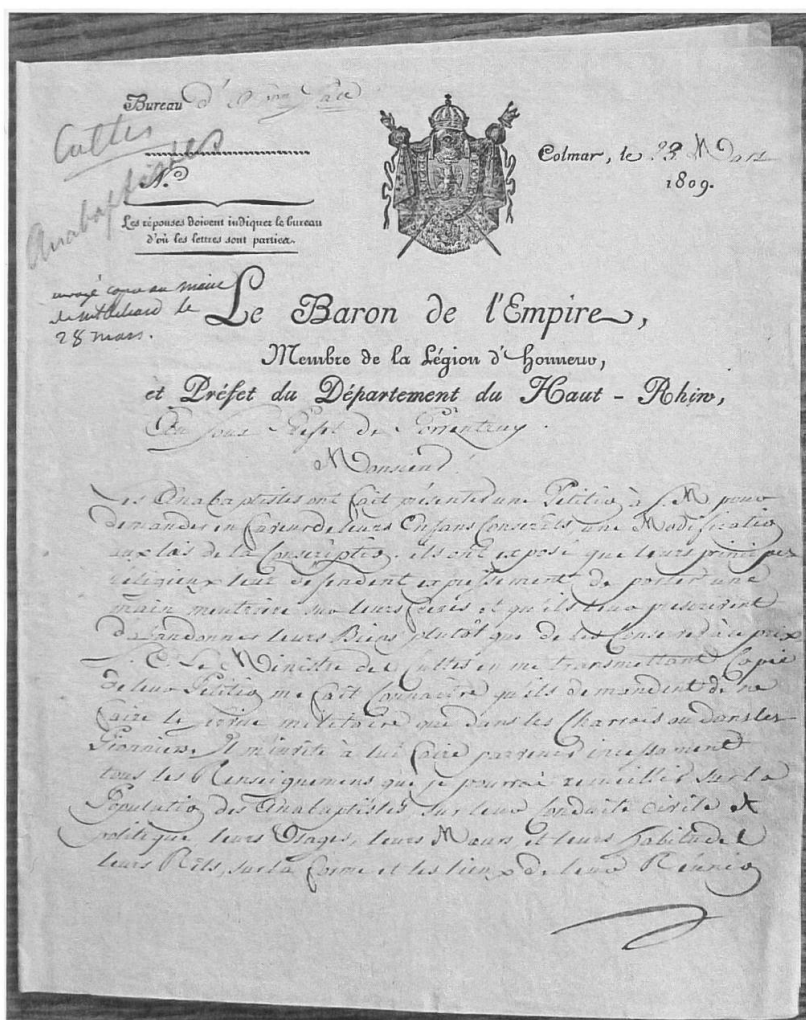 Bureau d'
Cultes
Anabaptistes
N.º
Les réponses doivent indiquer le bureau
d'où les lettres sont parties.
Colmar, le 23 Mars
1809.
envoyé copie au maire
de montbeliard le
28 mars.
Le Baron de l'Empire,
Membre de la Légion d'honneur,
et Préfet du Département du Haut-Rhin,
Au Sous Préfet de Porrentruy.
Monsieur!
Les Anabaptistes ont fait présenter une Petitio à S. M. pour
demander en faveur de leurs Enfans Conscrits une Modificatio
aux lois de la Conscriptio. ils ont exposé que leurs principes
religieux leur defendent expressement de porter une
main meutrière sur leurs frères et qu'ils leur prescrivent
d'abandonner leurs Biens plutôt que de les Conserver à ce prix
S. E. Le Ministre des Cultes en me transmettant Copie
de leur Petitio me fait Connaitre qu'ils demandent de ne
faire le service militaire que dans les Charrois ou dans les
Pionniers. Il m'invite à lui faire parvenir incessament
tous les Renseignemens que je pourrai recueillir sur la
Populatio des Anabaptistes sur leur Conduite Civile et
politique, leurs Usages, leurs Mœurs et leurs habitudes
leurs Rits, sur la forme et les lieux de leur Réunio